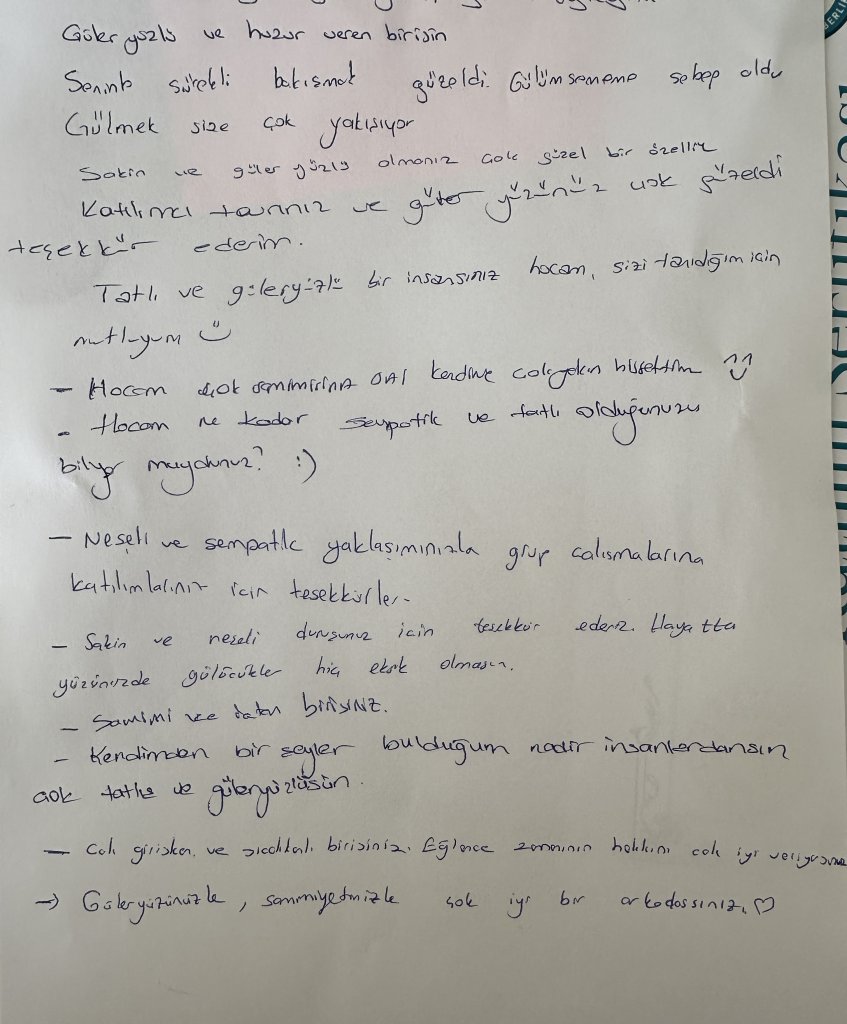 Güler yüzlü ve huzur veren birisin
Seninle sürekli bakışmak güzeldi. Gülümsememe sebep oldu
Gülmek size çok yakışıyor
Sakin ve güler yüzlü olmanız çok güzel bir özellik
Katılımcı tavrınız ve güler yüzünüz çok güzeldi
teşekkür ederim.
Tatlı ve güleryüzlü bir insansınız hocam, sizi tanıdığım için
mutluyum
- Hocam çok kendime hissettim ^^
- Hocam ne kadar sempatik ve tatlı olduğunuzu
biliyor muydunuz? :)
- Neşeli ve sempatik yaklaşımınızla grup çalışmalarına
katılımlarınız için teşekkürler.
- Sakin ve neşeli duruşunuz için teşekkür ederiz. Hayatta
yüzünüzde gülücükler hiç eksik olmasın.
- Samimi ve birisiniz.
- Kendimden bir şeyler bulduğum nadir insanlardansın
çok tatlı ve güleryüzlüsün.
- Çok girişken ve sıcakkanlı birisiniz. Eğlence zamanının hakkını çok iyi
→ Güleryüzünüzle, samimiyetinizle çok iyi bir arkadaşsınız. ♡